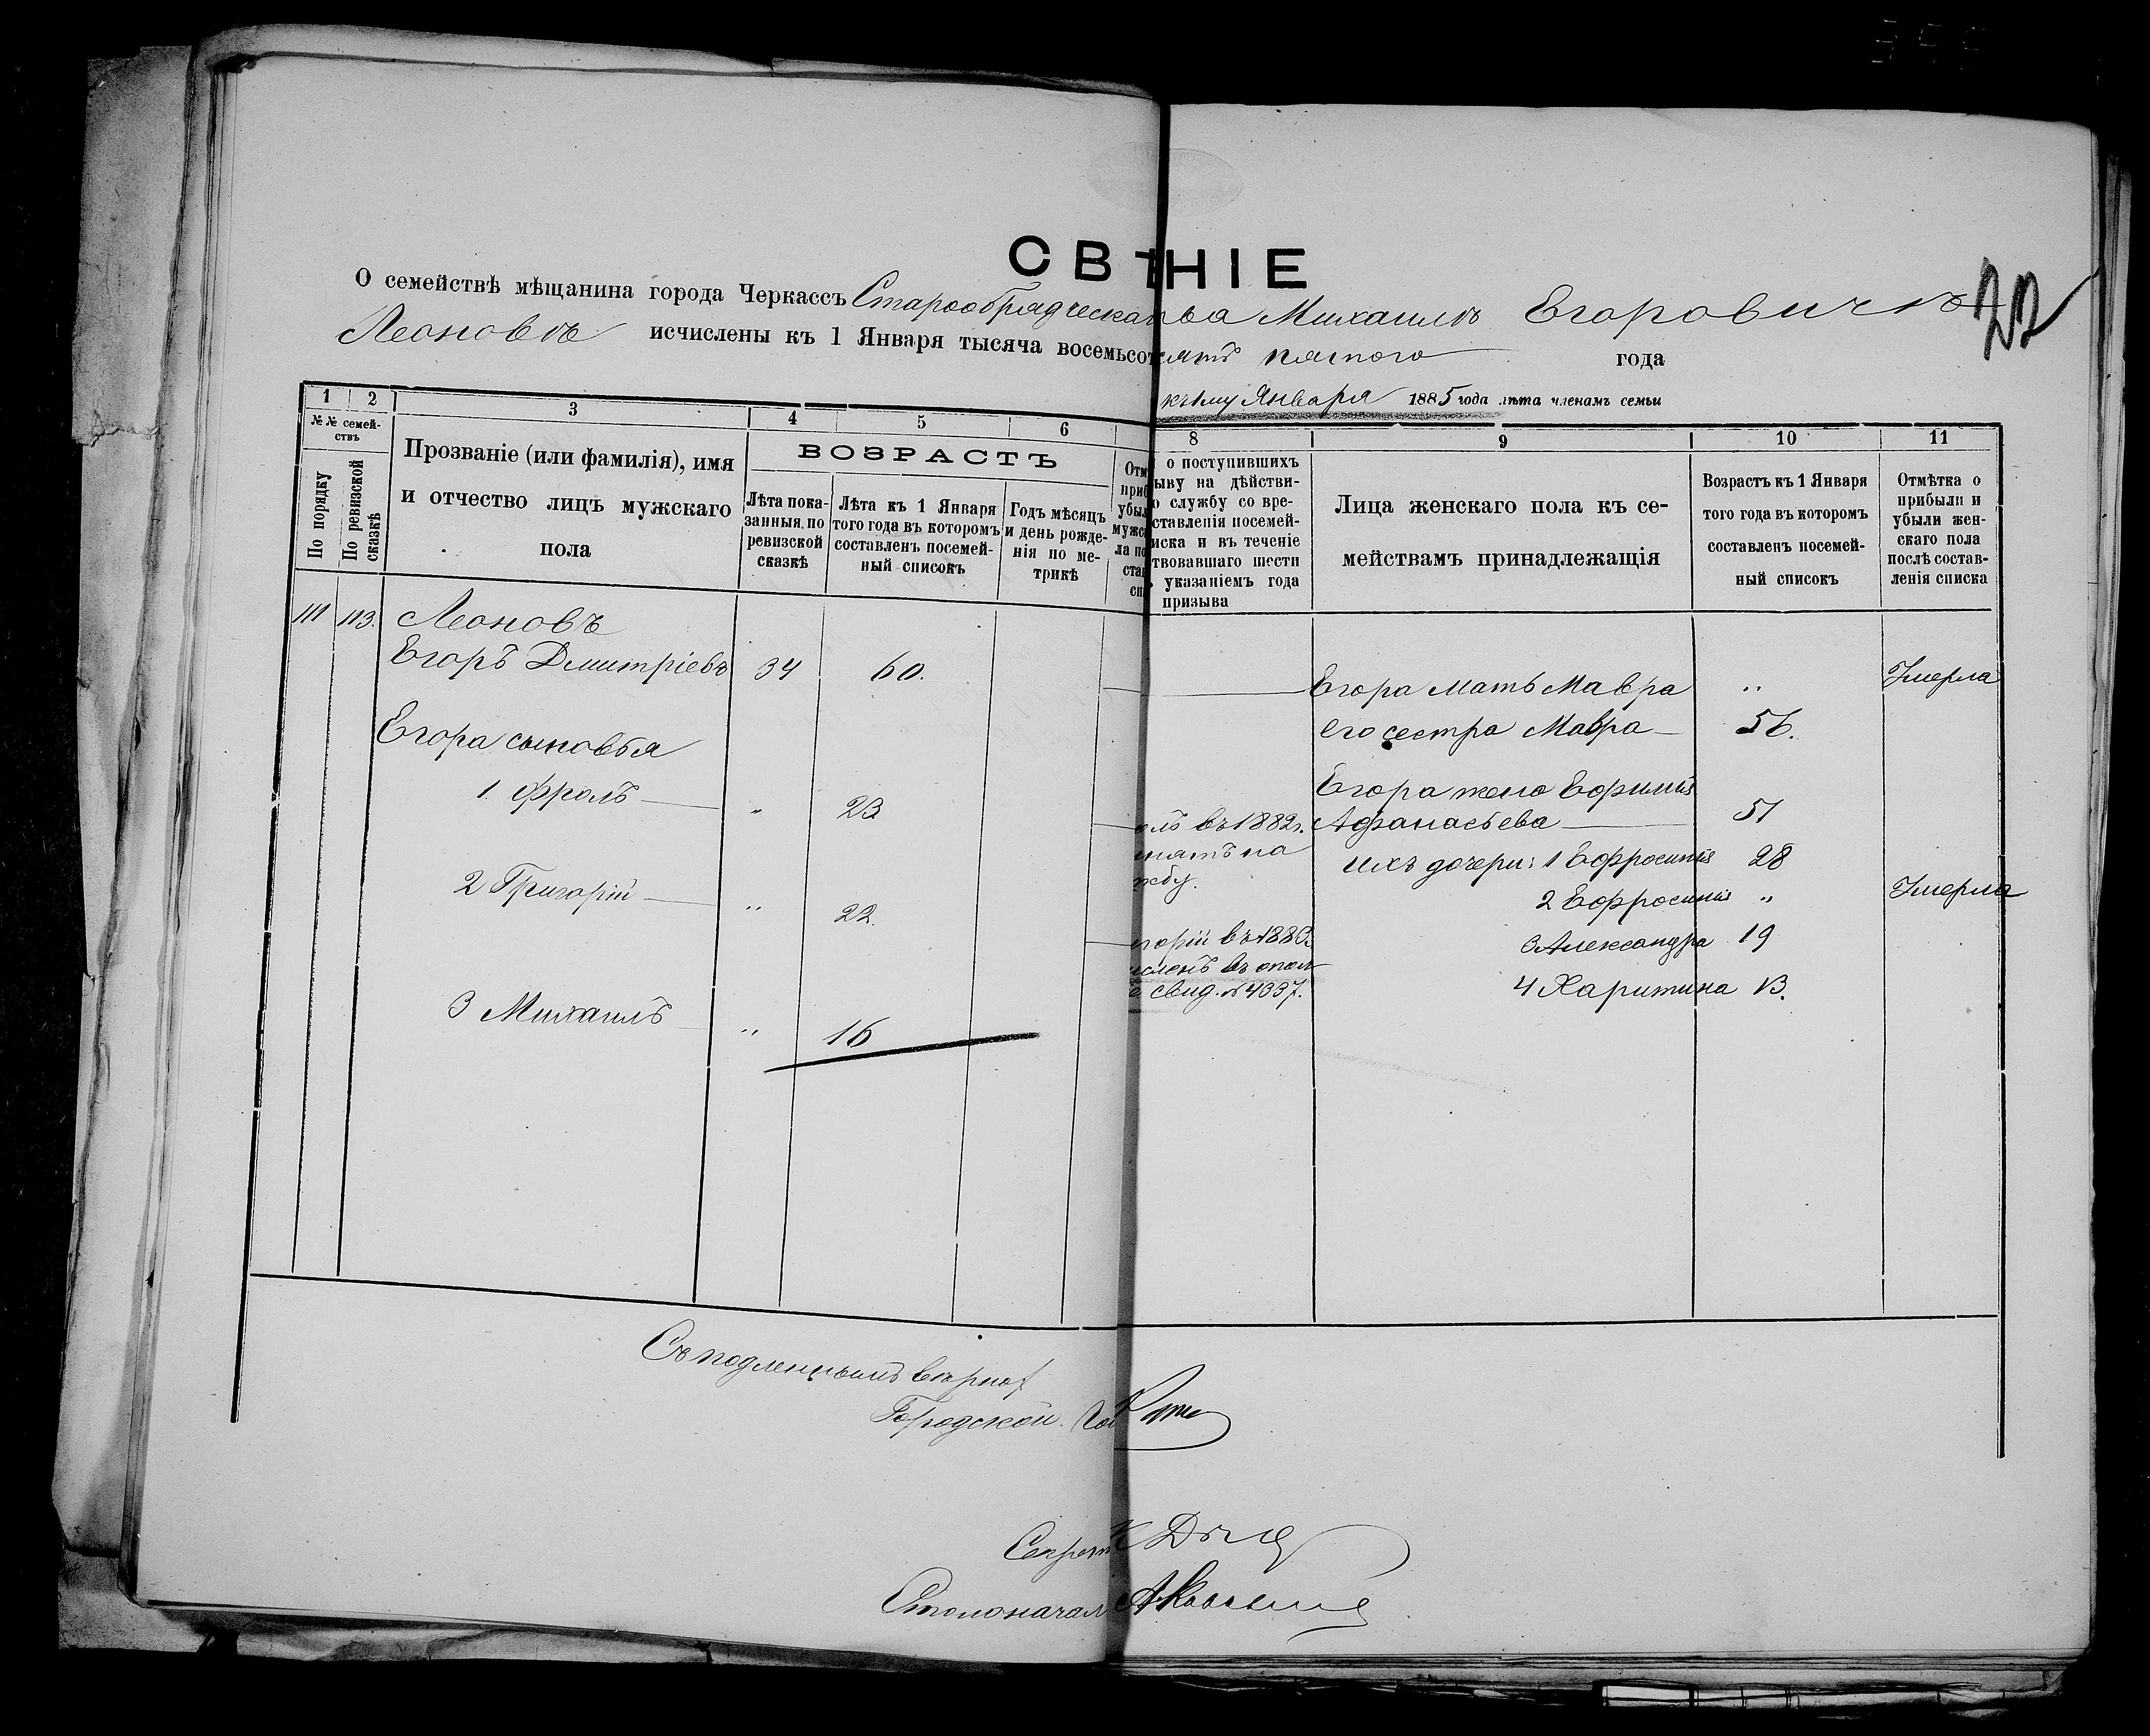 СВ НІЕ
О семействѣ мѣщанина города Черкассъ Старообрядческа ва Михаилѣ Егоровичѣ
22
Леоновѣ исчислены къ 1 Января тысяча восемьсот ятъ пятого года
къ 1му Января 1885 года лѣта членамъ семьи
1 2 3 4 5 6 8 9 10 11
№№ семей-
ствъ
По порядку
По ревизской
сказкѣ
Прозваніе (или фамилія), имя
и отчество лицъ мужскаго
пола
ВОЗРАСТЪ
Лѣта пока-
занныя, по
ревизской
сказкѣ
Лѣта къ 1 Января
того года въ которомъ
составленъ посемей-
ный списокъ
Годъ мѣсяцъ
и день рожде-
нія по ме-
трикѣ
Отм
приб
убыл
мужск
ла по
став
сп
о поступившихъ
ыву на дѣйстви-
о службу со вре-
ставленія посемей-
иска и въ теченіе
твовавшаго шести
указаніемъ года
призыва
Лица женскаго пола къ се-
мействамъ принадлежащія
Возрастъ къ 1 Января
того года въ которомъ
составленъ посемей-
ный списокъ
Отмѣтка о
прибыли и
убыли жен-
скаго пола
послѣ состав-
ленія списка
111 113. Леоновъ
Егоръ Дмитріевъ 34 60.
Егора сыновья
1. Фролъ „ 23
2 Григорій „ 22.
3 Михаилъ „ 16
олъ въ 1882 г.
инятъ на
жбу.
игорій въ 1883
исленъ въ опол
свид. № 4337.
Егора мать Мавра „ Умерла
его сестра Мавра 56.
Егора жена Ефимія
Афанасьева 51
ихъ дочери: 1 Ефросинія 28
2 Ефросинія „ Умерла
3 Александра 19
4 Харитина 13.
Съ подленнымъ вѣрно:
Городской Гол
Секрет
Столоначал